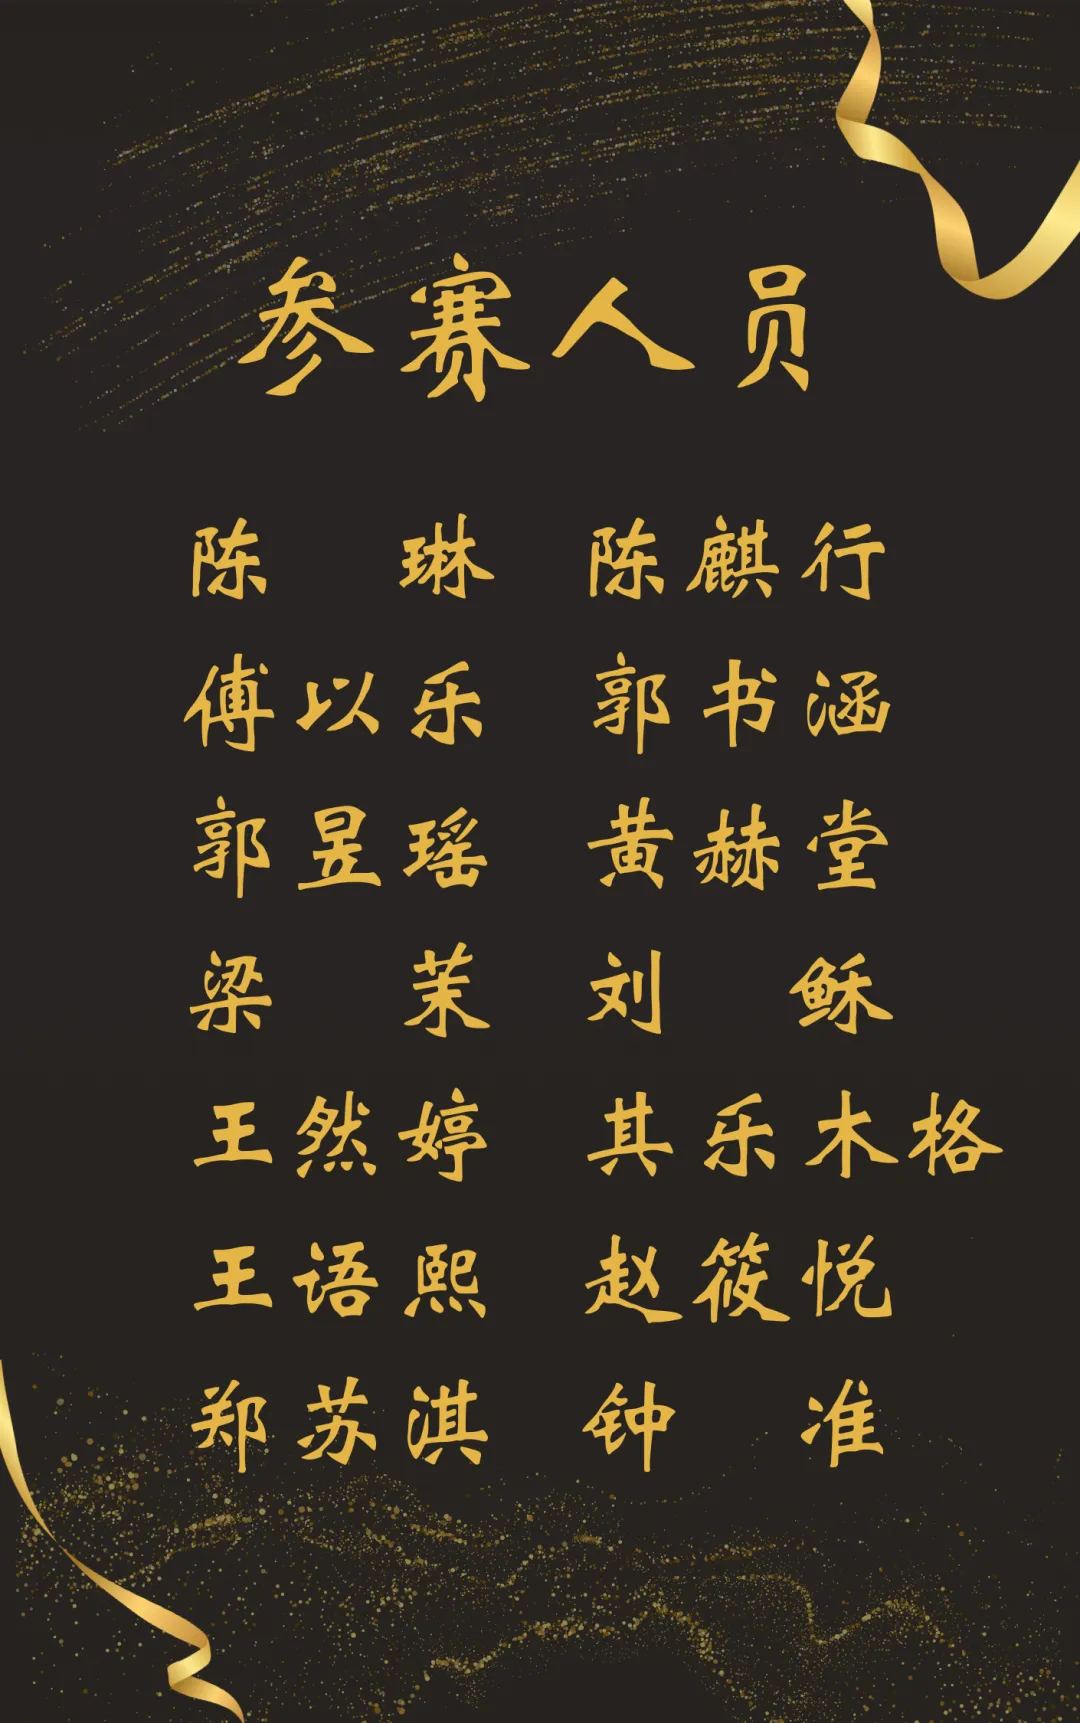 参赛人员
陈 琳 陈麒行
傅以乐 郭书涵
郭昱瑶 黄赫堂
梁 茉 刘 稣
王然婷 其乐木格
王语熙 赵筱悦
郑苏淇 钟 准